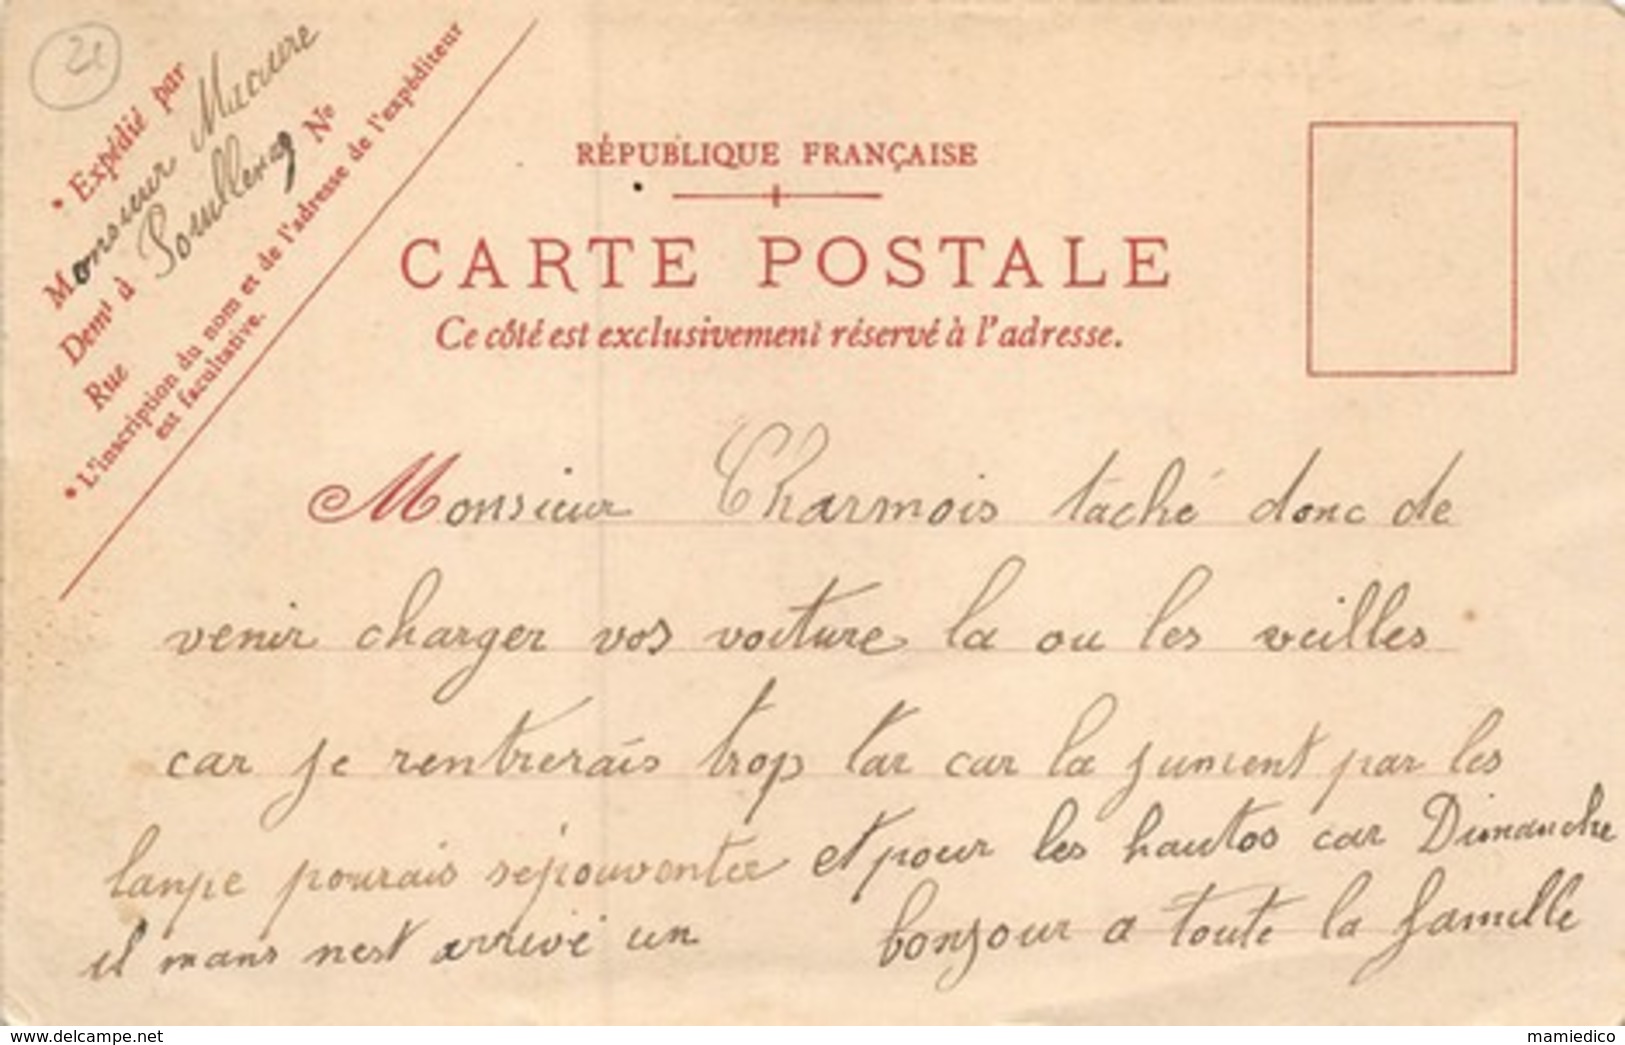 21
* Expédié par
Monsieur Macure
Demt à Poullenay No
Rue
* L'inscription du nom et de l'adresse de l'expéditeur
est facultative.
RÉPUBLIQUE FRANÇAISE
CARTE POSTALE
Ce côté est exclusivement réservé à l'adresse.
Monsieur Charmois taché donc de
venir charger vos voiture la ou les veilles
car je rentrerais trop tar car la jument par les
lanpe pourais sépouventer et pour les hautos car Dimanche
il mans nest arrivé un bonjour a toute la famille
delcampe.net
mamiedico